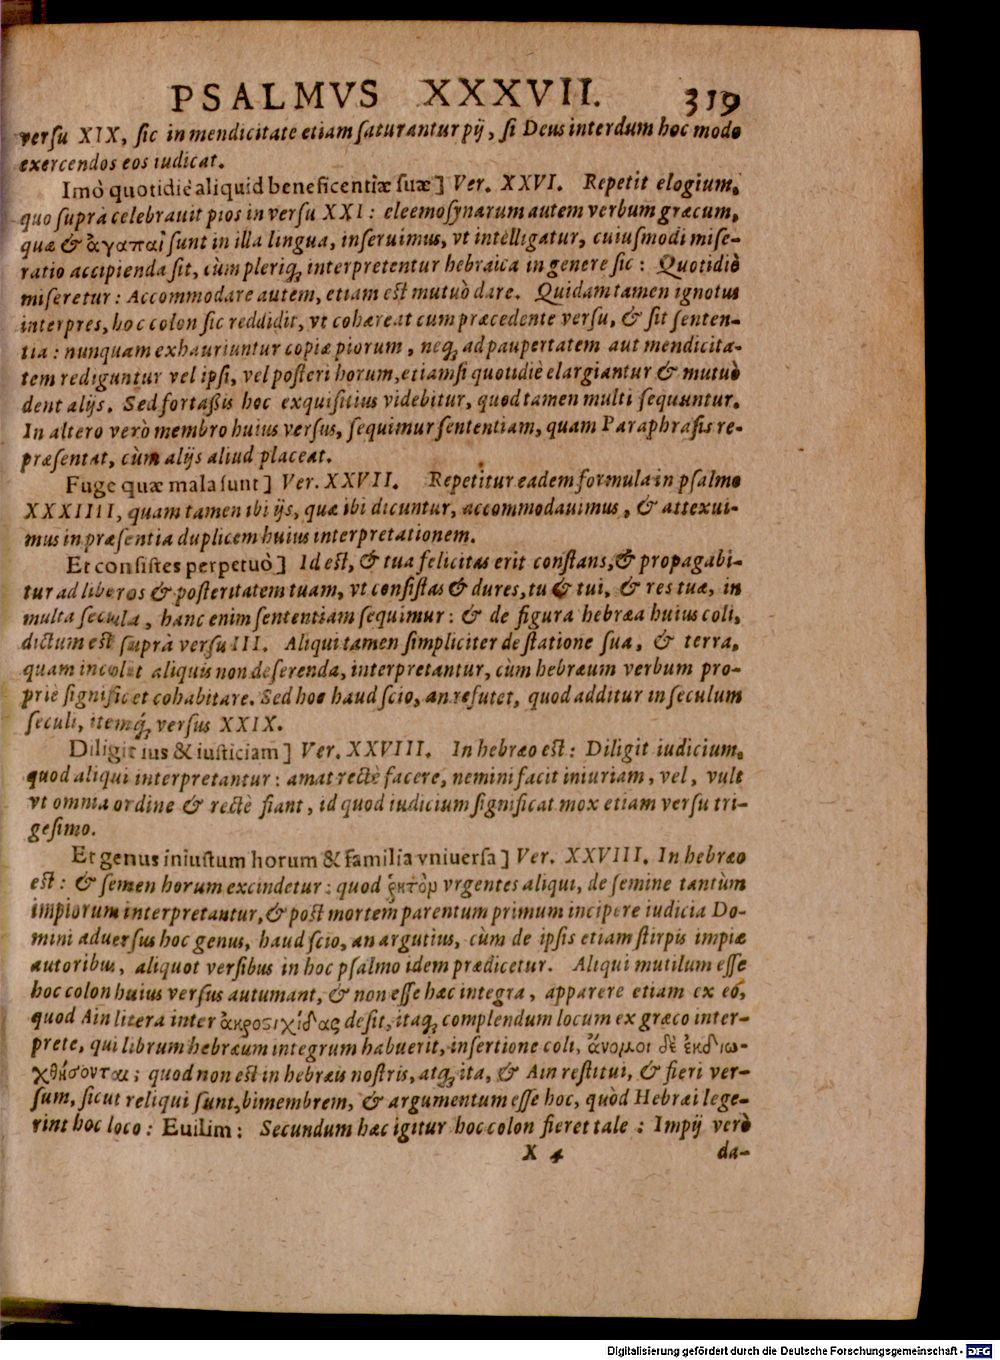 PSALMVS XXXVII. 319
versu XIX, sic in mendicitate etiam saturantur pij, si Deus interdum hoc modo
exercendos eos iudicat.
Imò quotidiè aliquid beneficentiæ suæ] Ver. XXVI. Repetit elogium,
quo suprà celebrauit pios in versu XXI: eleemosynarum autem verbum græcum,
quæ & ἀγαπαὶ sunt in illa lingua, inseruimus, vt intelligatur, cuiusmodi mise-
ratio accipienda sit, cùm pleriq́; interpretentur hebraica in genere sic: Quotidiè
miseretur: Accommodare autem, etiam est mutuò dare. Quidam tamen ignotus
interpres, hoc colon sic reddidit, vt cohæreat cum præcedente versu, & sit senten-
tia: nunquam exhauriuntur copiæ piorum, neq́; ad paupertatem aut mendicita-
tem rediguntur vel ipsi, vel posteri horum, etiamsi quotidiè elargiantur & mutuò
dent alijs. Sed fortaßis hoc exquisitius videbitur, quod tamen multi sequuntur.
In altero verò membro huius versus, sequimur sententiam, quam Paraphrasis re-
præsentat, cùm alijs aliud placeat.
Fuge quæ mala sunt] Ver. XXVII. Repetitur eadem formula in psalmo
XXXIIII, quam tamen ibi ijs, quæ ibi dicuntur, accommodauimus, & attexui-
mus in præsentia duplicem huius interpretationem.
Et consistes perpetuò] Id est, & tua felicitas erit constans, & propagabi-
tur ad liberos & posteritatem tuam, vt consistas & dures, tu & tui, & res tuæ, in
multa secula, hanc enim sententiam sequimur: & de figura hebræa huius coli,
dictum est suprà versu III. Aliqui tamen simpliciter de statione sua, & terra,
quam incolat aliquis non deserenda, interpretantur, cùm hebræum verbum pro-
priè significet cohabitare. Sed hoc haud scio, an refutet, quod additur in seculum
seculi, itemq́; versus XXIX.
Diligit ius & iusticiam] Ver. XXVIII. In hebræo est: Diligit iudicium,
quod aliqui interpretantur: amat rectè facere, nemini facit iniuriam, vel, vult
vt omnia ordine & rectè fiant, id quod iudicium significat mox etiam versu tri-
gesimo.
Et genus iniustum horum & familia vniuersa] Ver. XXVIII. In hebræo
est: & semen horum excindetur: quod ῥητὸρ vrgentes aliqui, de semine tantùm
impiorum interpretantur, & post mortem parentum primum incipere iudicia Do-
mini aduersus hoc genus, haud scio, an argutius, cùm de ipsis etiam stirpis impiæ
autoribus, aliquot versibus in hoc psalmo idem prædicetur. Aliqui mutilum esse
hoc colon huius versus autumant, & non esse hæc integra, apparere etiam ex eo,
quod Ain litera inter ἀκροστιχίδας desit, itaq́; complendum locum ex græco inter-
prete, qui librum hebræum integrum habuerit, insertione coli, ἄνομοι δὲ ἐκδιω-
χθήσονται; quod non est in hebræis nostris, atq́; ita, & Ain restitui, & fieri ver-
sum, sicut reliqui sunt, bimembrem, & argumentum esse hoc, quòd Hebræi lege-
rint hoc loco: Euilim: Secundum hæc igitur hoc colon fieret tale: Impij verò
X 4 da-
Digitalisierung gefördert durch die Deutsche Forschungsgemeinschaft - DFG